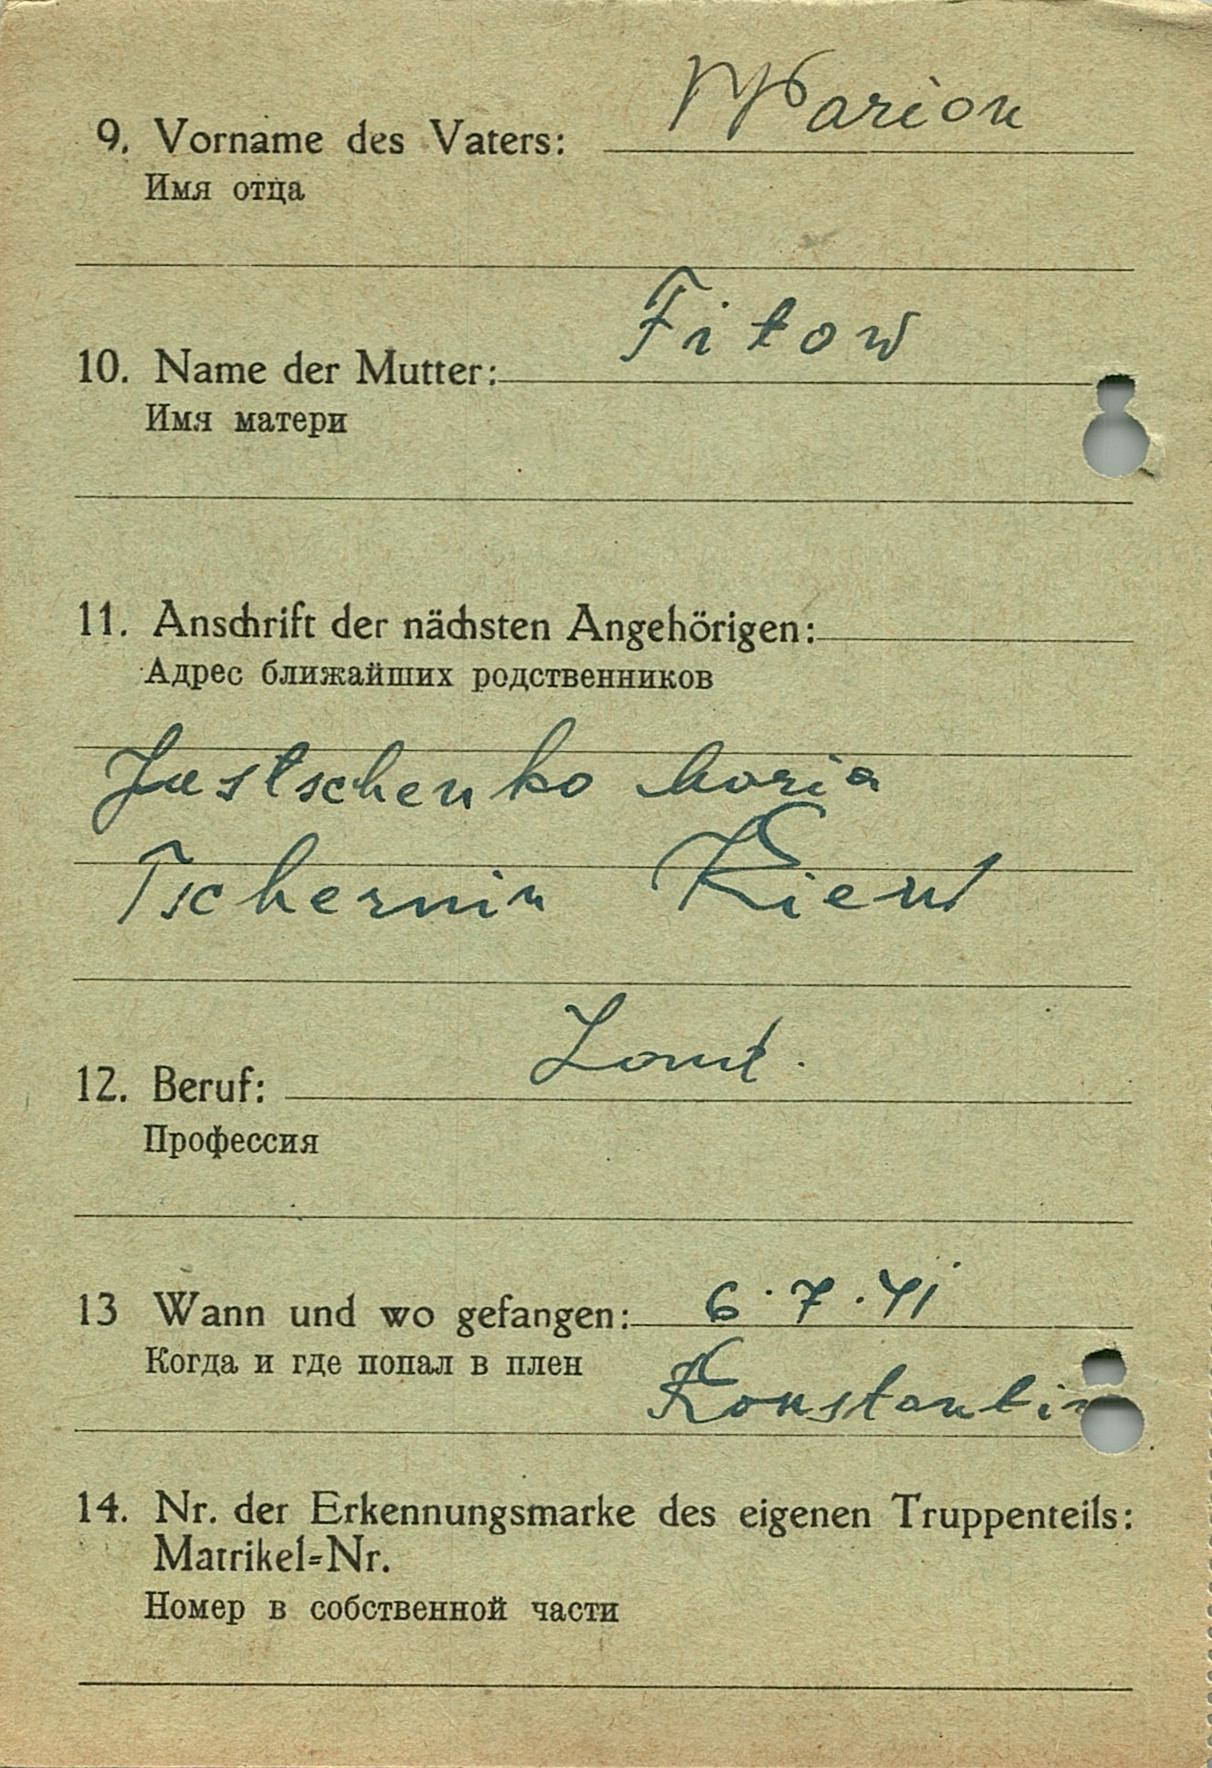 9. Vorname des Vaters: Marion
Имя отца
10. Name der Mutter: Fitow
Имя матери
11. Anschrift der nächsten Angehörigen:
Адрес ближайших родственников
Justschenko Maria
Tschernin Kiew
12. Beruf: Landw.
Профессия
13 Wann und wo gefangen: 6.7.41
Когда и где попал в плен
Konstantin
14. Nr. der Erkennungsmarke des eigenen Truppenteils:
Matrikel=Nr.
Номер в собственной части